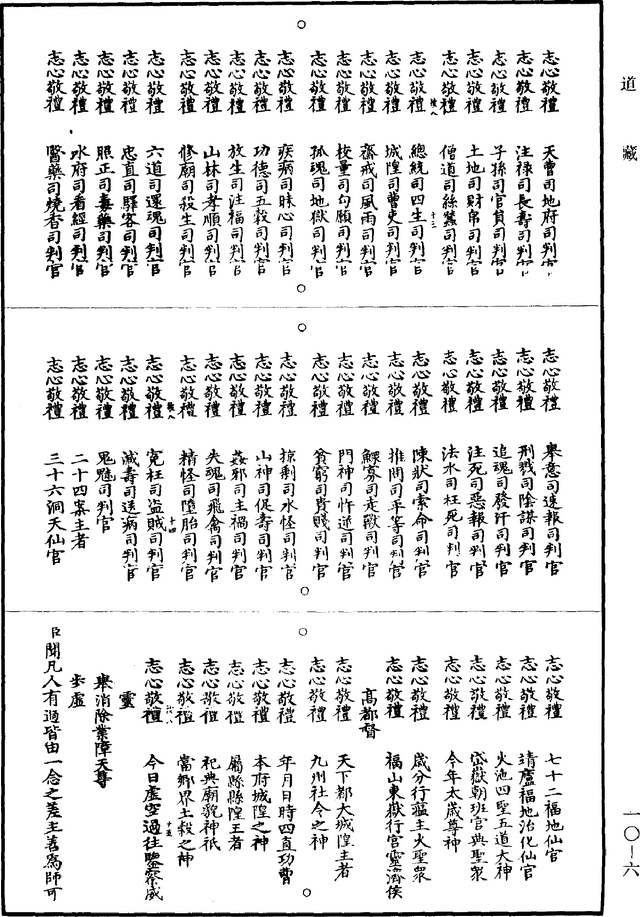 道藏
志心敬禮 天曹司地府司判官
志心敬禮 注祿司長壽司判官
志心敬禮 子孫司官員司判官
志心敬禮 土地司財帛司判官
志心敬禮 僧道司絲蠶司判官
志心敬禮 總統司四生司判官
十三
志心敬禮 城隍司曹吏司判官
志心敬禮 齋戒司風雨司判官
志心敬禮 校量司勾願司判官
志心敬禮 孤魂司地獄司判官
志心敬禮 疾病司昧心司判官
志心敬禮 功德司五穀司判官
志心敬禮 放生司注福司判官
志心敬禮 山林司孝順司判官
志心敬禮 修廟司殺生司判官
志心敬禮 六道司還魂司判官
志心敬禮 忠直司驛客司判官
志心敬禮 照正司毒藥司判官
志心敬禮 水府司看經司判官
志心敬禮 醫藥司燒香司判官
志心敬禮 舉意司速報司判官
志心敬禮 刑戮司陰謀司判官
志心敬禮 追魂司發汗司判官
志心敬禮 注死司惡報司判官
志心敬禮 法水司枉死司判官
志心敬禮 陳狀司索命司判官
志心敬禮 推問司平等司判官
志心敬禮 鰥寡司走獸司判官
志心敬禮 門神司忤逆司判官
志心敬禮 貧窮司貴賤司判官
志心敬禮 掠剩司水怪司判官
志心敬禮 山神司促壽司判官
志心敬禮 姦邪司主福司判官
志心敬禮 失魂司飛禽司判官
志心敬禮 精怪司墮胎司判官
十四
志心敬禮 冤枉司盜賊司判官
志心敬禮 減壽司送病司判官
志心敬禮 鬼魅司判官
志心敬禮 二十四案主者
志心敬禮 三十六洞天仙官
志心敬禮 七十二福地仙官
志心敬禮 靖廬福地治化仙官
志心敬禮 火池四聖五道大神
志心敬禮 岱嶽朝班官典聖衆
志心敬禮 今年太歲尊神
志心敬禮 歲分行瘟主火聖衆
志心敬禮 福山東嶽行宮靈濟侯
高都督
志心敬禮 天下都大城隍主者
志心敬禮 九州社令之神
志心敬禮 年月日時四直功曹
志心敬禮 本府城隍之神
志心敬禮 屬縣縣隍王者
志心敬禮 祀典廟貌神祇
志心敬禮 當鄉界土穀之神
十五
志心敬禮 今日虛空過往鑒察威
靈
舉消除業障天尊
步虛
臣聞凡人有過皆由一念之差主善爲師可
一〇-六